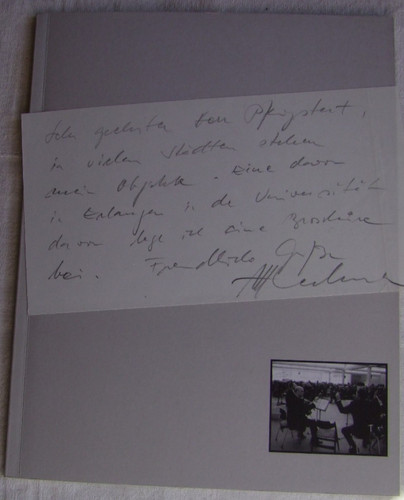 Sehr geehrter Herr Pfingstert,
in vielen Städten stehen
meine Objekte. Eine davon
in Erlangen in der Universität
davon lege ich eine Broschüre
bei. Freundliche Grüße